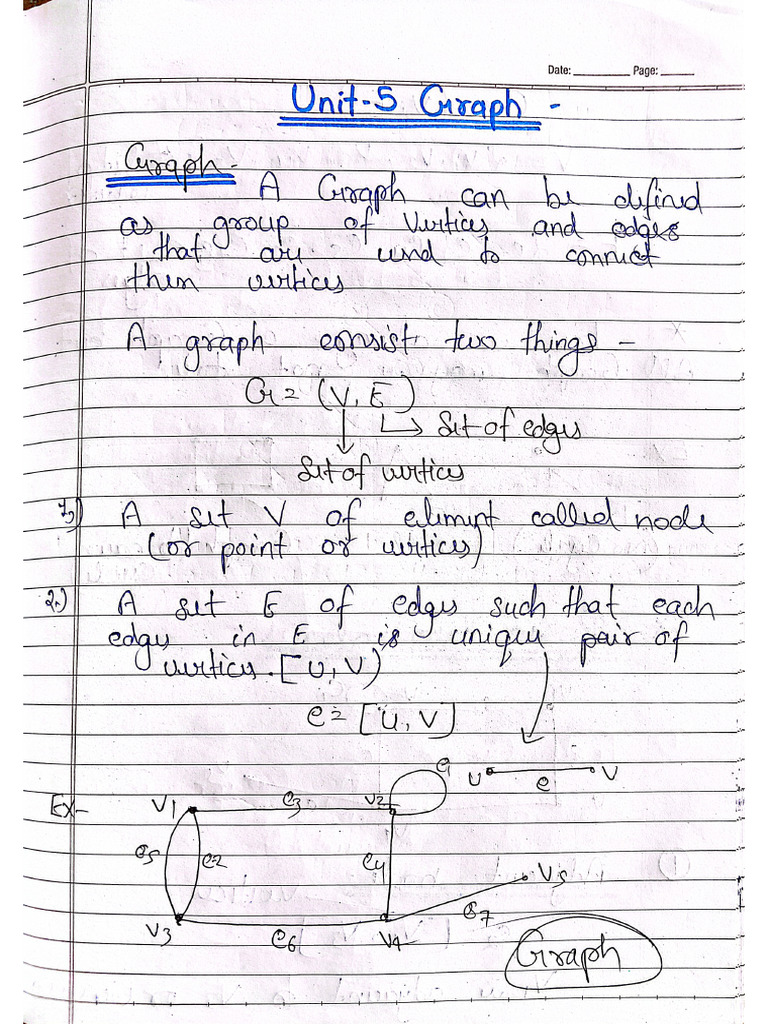 Date: ________ Page: _____
Unit-5 Graph -
Graph -
A Graph can be defined
as group of Vertices and edges
that are used to connect
then vertices
A graph consist two things -
G = (V, E)
Set of edges
Set of vertices
1.) A set V of element called node
(or point or vertices)
2.) A set E of edges such that each
edges in E is unique pair of
vertices. [U, V)
e = [U, V]
U e V
Ex-
V1 e3 V2
e5 e2 e4
V5
V3 e6 V4 e7
Graph